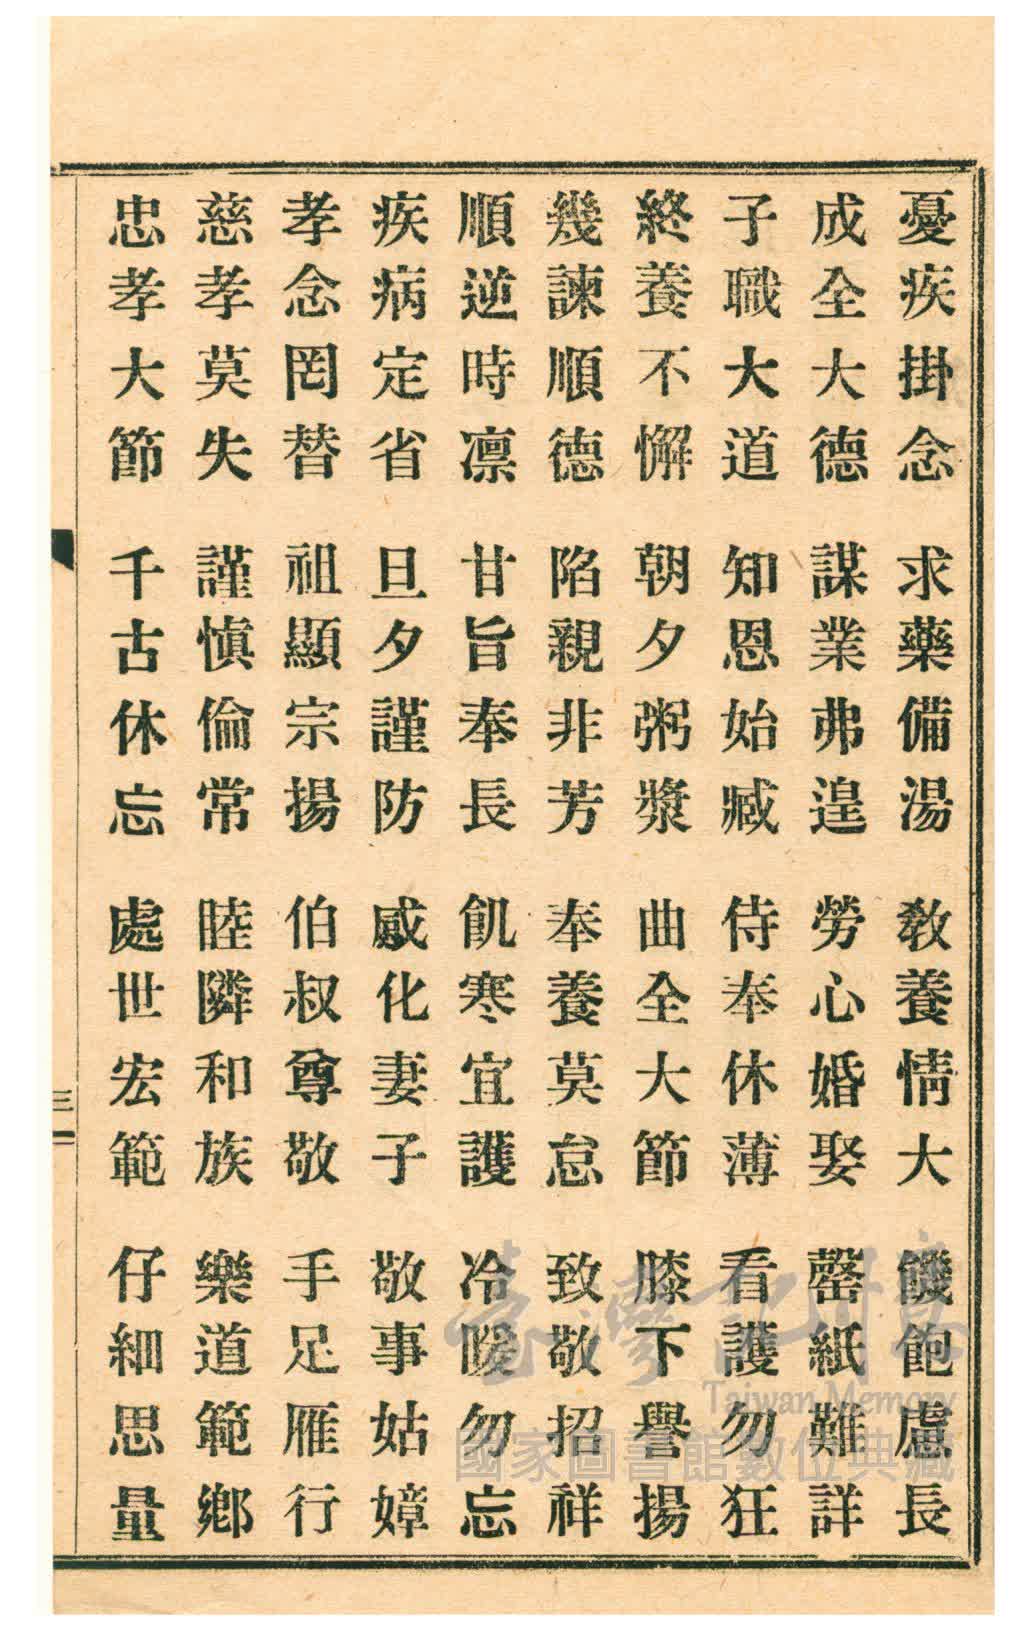 憂疾掛念 求藥備湯 教養情大 饑飽慮長
成全大德 謀業弗遑 勞心婚娶 罄紙難詳
子職大道 知恩始臧 侍奉休薄 看護勿狂
終養不懈 朝夕粥漿 曲全大節 膝下譽揚
幾諫順德 陷親非芳 奉養莫怠 致敬招祥
順逆時凛 甘旨奉長 飢寒宜護 冷暖勿忘
疾病定省 旦夕謹防 感化妻子 敬事姑嫜
孝念罔替 祖顯宗揚 伯叔尊敬 手足雁行
慈孝莫失 謹慎倫常 睦隣和族 樂道範鄉
忠孝大節 千古休忘 處世宏範 仔細思量
三
臺灣記憶
Taiwan Memory
國家圖書館數位典藏